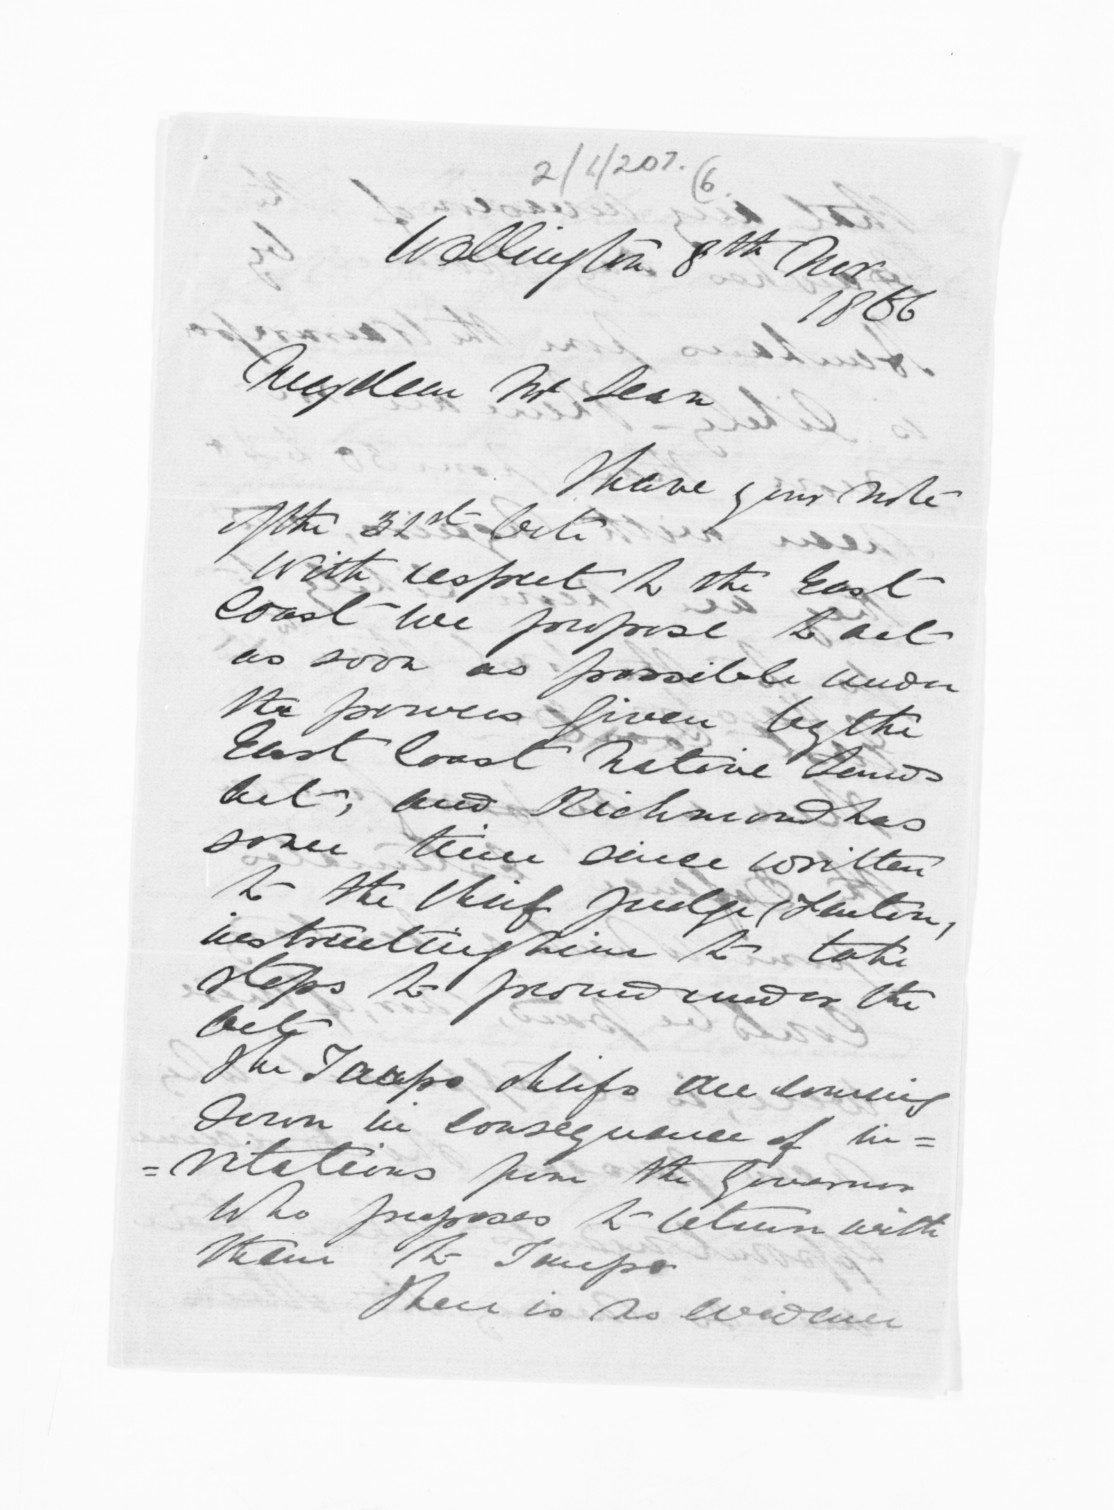 2/1/207. (6
Wellington 8th Nov
1866
My dear Mc Lean
I have your note
of the 31st Octr
With respect to the East
Coast we propose to act
as soon as possible under
the powers given by the
East Coast Native Lands
Act, and Richmond has
some time since written
to the Chief Judge (Fenton,
instructing him to take
steps to proceed under the
Act
The Taupo chiefs are coming
down in consequence of in=
=vitations from the Governor
who proposes to return with
them to Taupo
There is no evidence